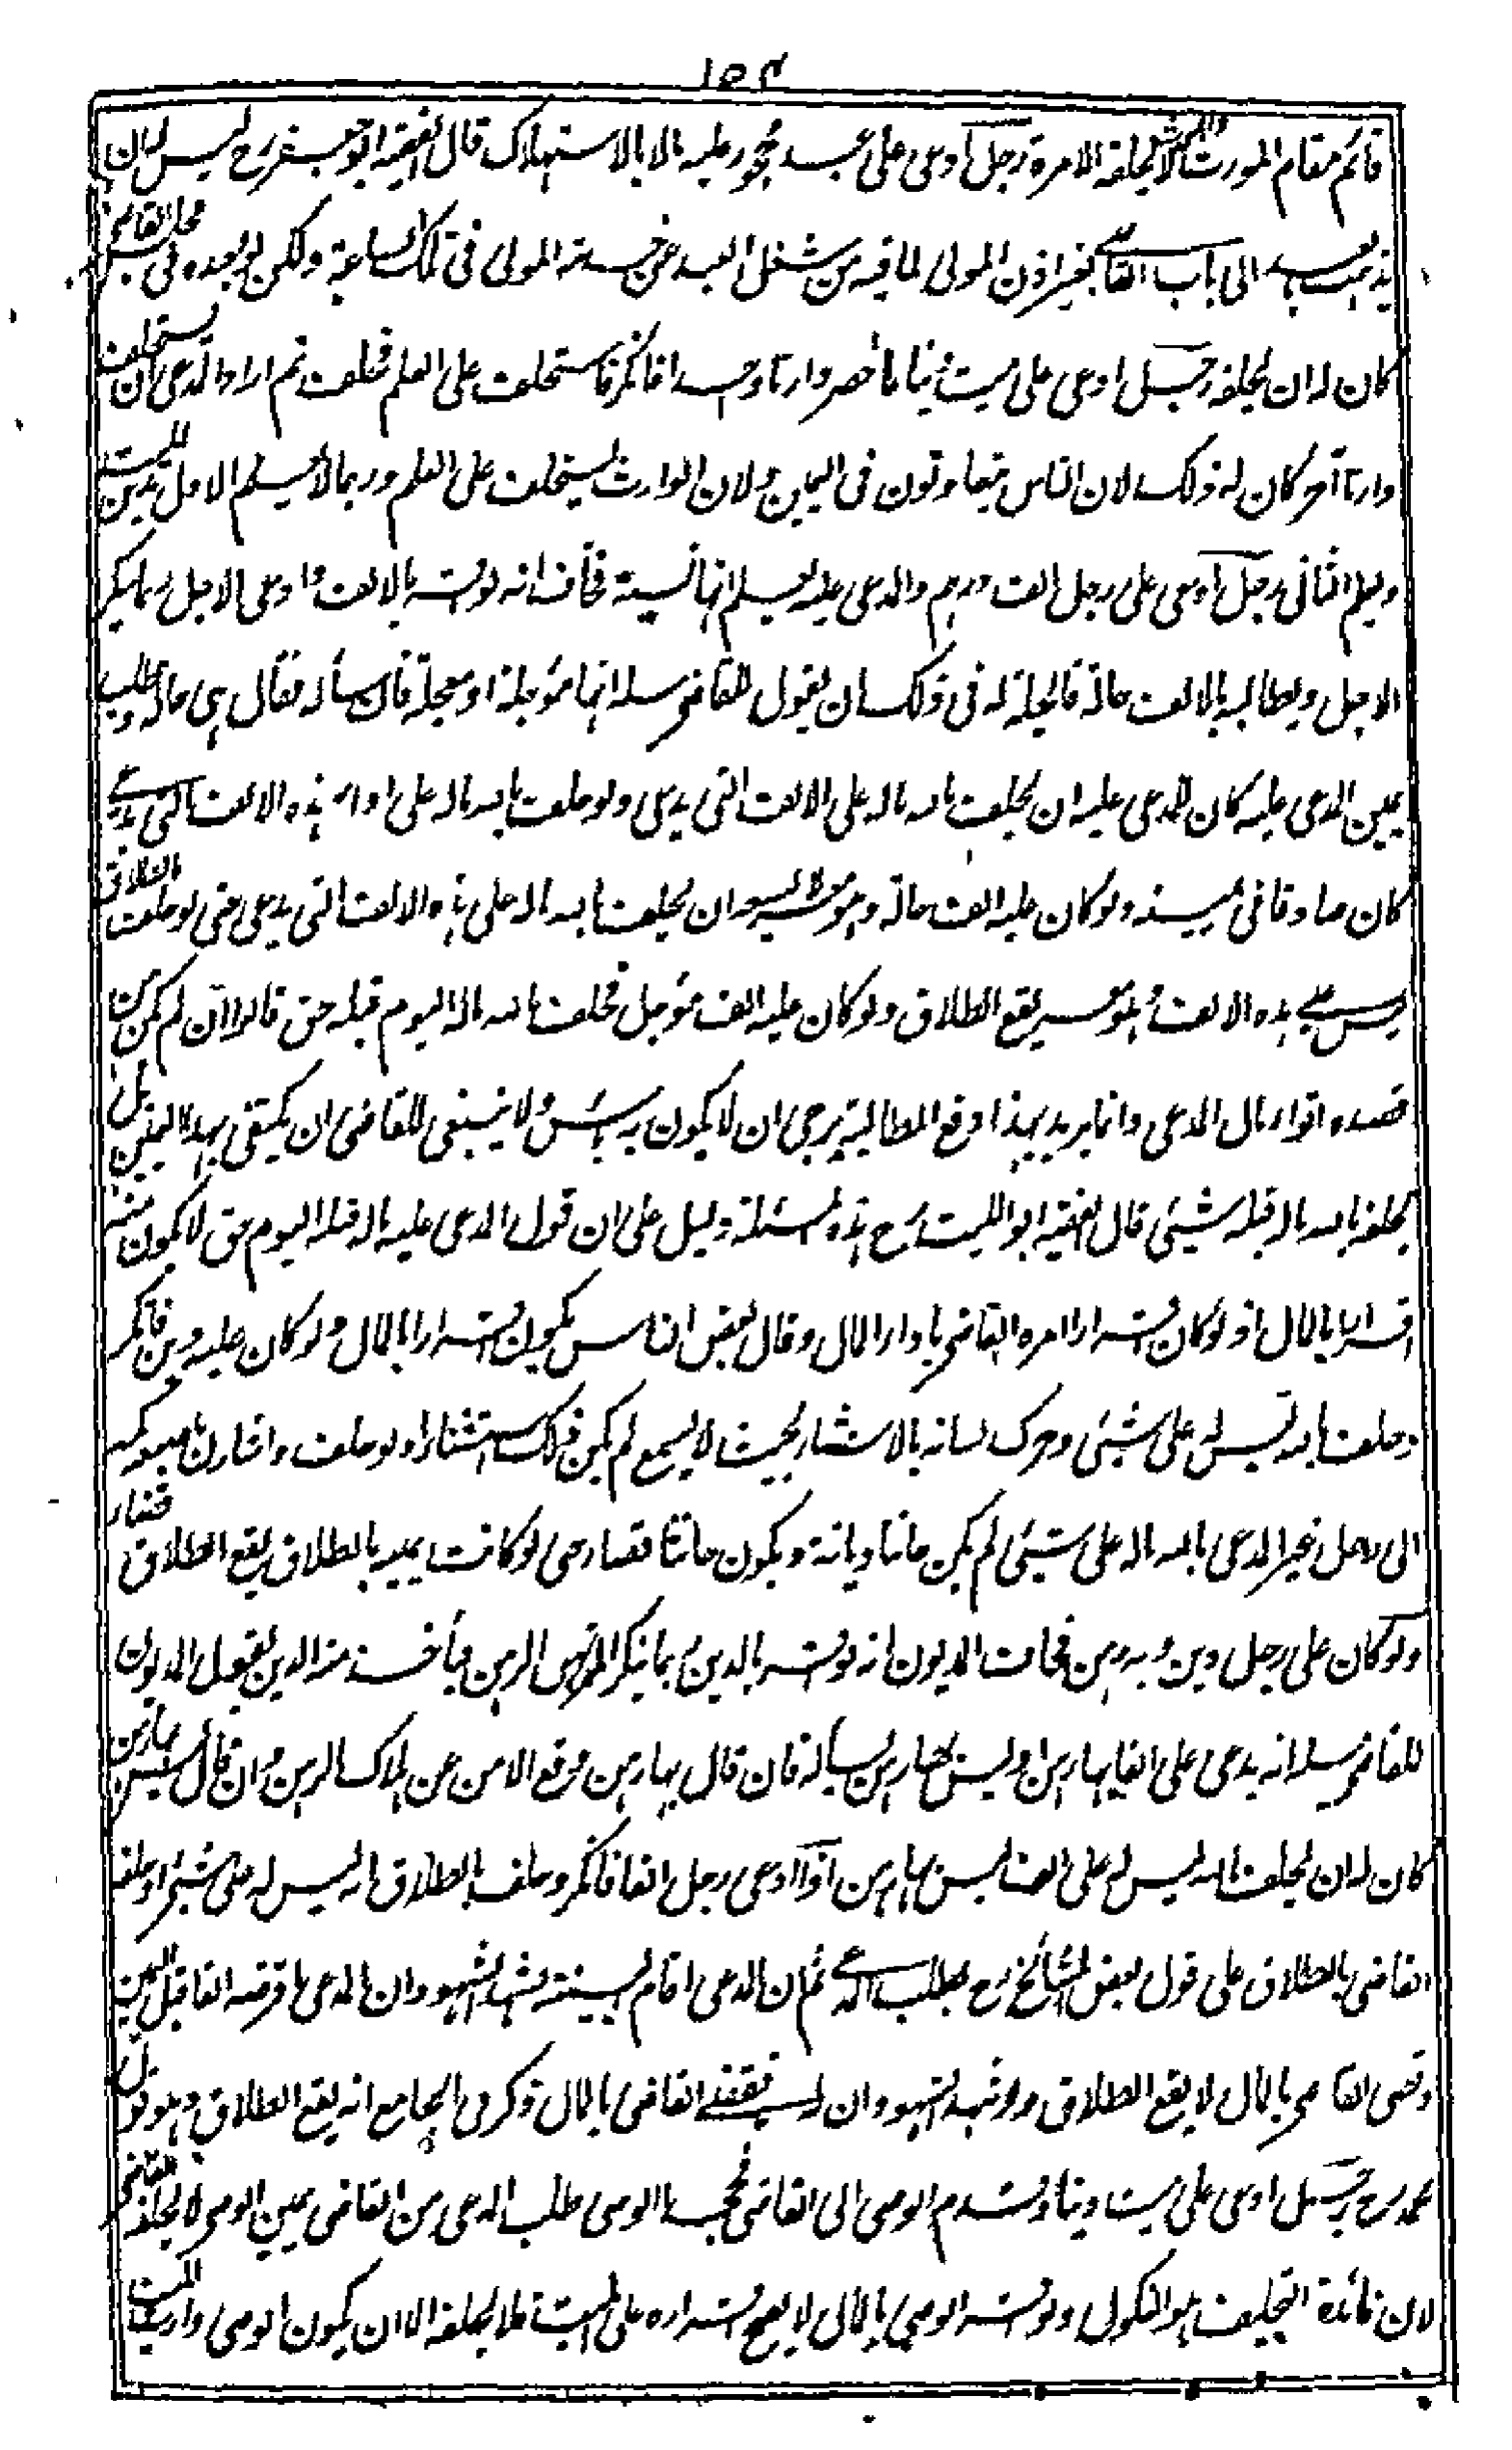 ١٥٤
قائم مقام المورث والمورث لا يحلفه الا مرة رجل ادعى على عبد محجور عليه مالا بالاستهلاك قال الفقيه ابو جعفر رح ليس له ان
يذهب به الى باب القاضي بغير اذن المولى لما فيه من شغل العبد عن خدمة المولى في تلك الساعة ولكن لو وجده في مجلس القاضي
كان له ان يحلفه رجل ادعى على ميت دينا فاحضر وارثا واحدا فانكر فاستحلف على العلم فحلف ثم اراد المدعي ان يستحلف
وارثا آخر كان له ذلك لان الناس يتفاوتون في اليمين ولان الوارث يستحلف على العلم وربما لا يعلم الاول بدين الميت
ويعلم الثاني رجل ادعى على رجل الف درهم والمدعى عليه يعلم انها نسيئة فخاف انه لو اقر بالالف وادعى الاجل ربما ينكر
الاجل ويطالبه بالالف حالة فالحيلة له في ذلك ان يقول للقاضي سله انها مؤجلة او معجلة فان سأله فقال هي حالة وطلب
يمين المدعى عليه كان للمدعى عليه ان يحلف بالله ماله على الالف التي يدعي ولو حلف بالله ماله على اداء هذه الالف التي يدعي
كان صادقا في يمينه ولو كان عليه الف حالة وهو معسر لا يسعه ان يحلف بالله ماله على هذه الالف التي يدعي حتى لو حلف بالطلاق
ليس علي هذه الالف وهو معسر يقع الطلاق ولو كان عليه الف مؤجل فحلف بالله ماله اليوم قبله حق قالوا ان لم يكن من
قصده اتواء مال المدعي وانما يريد بهذا دفع المطالبة يرجى ان لا يكون به باس ولا ينبغي للقاضي ان يكتفي بهذا اليمين بل
يحلفه بالله ماله قبله شيئ قال الفقيه ابو الليث رح هذه المسئلة دليل على ان قول المدعى عليه ماله قبله اليوم حق لا يكون منه
اقرارا بالمال اذ لو كان اقرارا لامره القاضي باداء المال وقال بعض الناس يكون اقرارا بالمال ولو كان عليه دين فانكر
وحلف بالله ليس له علي شيئ وحرك لسانه بالاستثناء بحيث لا يسمع لم يكن ذلك استثناء ولو حلف واشار باصبعه في كمه
الى رجل غير المدعي بالله ماله علي شيئ لم يكن حانثا ديانة ويكون حانثا قضاء حتى لو كانت يمينه بالطلاق يقع الطلاق قضاء
ولو كان على رجل دين وبه رهن فخاف المديون انه لو اقر بالدين ربما ينكر المرتهن الرهن ويأخذ منه الدين يقول المديون
للقاضي سله انه يدعي علي الفا بها رهن او ليس بها رهن يسأله فان قال بها رهن وقع الامن عن هلاك الرهن وان قال ليس بها رهن
كان له ان يحلف بالله ليس له علي الف ليس بها رهن اذا ادعى رجل الفا فانكر وحلف بالطلاق انه ليس له علي شيئ او حلفه
القاضي بالطلاق على قول بعض المشائخ رح بطلب المدعي ثم ان المدعي اقام البينة فشهد الشهود ان المدعي اقرضه الفا قبل اليمين
وقضى القاضي بالمال لا يقع الطلاق ولو شهد الشهود ان له عليه فقضى القاضي بالمال ذكر في الجامع انه يقع الطلاق وهو قول
محمد رح رجل ادعى على ميت دينا وقدم الوصي الى القاضي فجحد الوصي طلب المدعي من القاضي يمين الوصي لا يحلفه القاضي
لان فائدة التحليف هو النكول ولو اقر الوصي بالمال لا يصح اقراره على الميت فلا يحلفه الا ان يكون الوصي وارث الميت